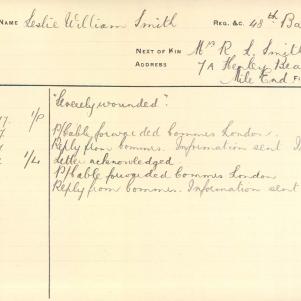 NAME Leslie William Smith REG. &C. 48th Ba
NEXT OF KIN Mrs R. L. Smith
ADDRESS 7A Henley Bea
Mile End
"Severely wounded".
17 1/P P/Cable forwarded Commrs London.
7 Reply from Commrs. Information sent
1/L Letter acknowledged
P/Cable forwarded Commrs London
Reply from Commrs. Information sent